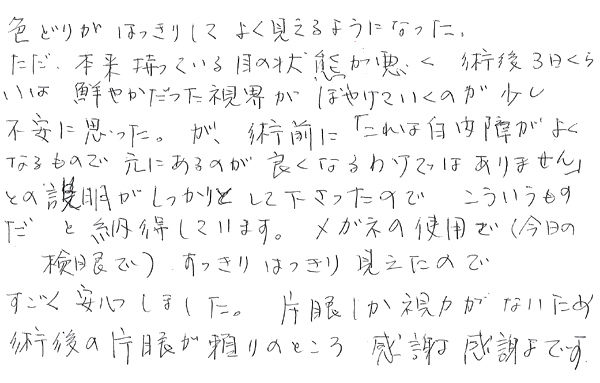 色どりが はっきりして よく見えるようになった、
ただ、本来 持っている 目の状態が悪く 術後 3日くら
いは 鮮やかだった視界が ぼやけていくのが 少し
不安に思った。が、術前に「これは白内障がよく
なるもので 元にあるのが 良くなるわけではありません」
との説明がしっかりと して下さったので こういうもの
だ と納得しています。メガネの使用で(今日の
検眼で) すっきり はっきり 見えたので
すごく 安心しました。片眼しか視力がないため
術後の片眼が頼りのところ 感謝 感謝です